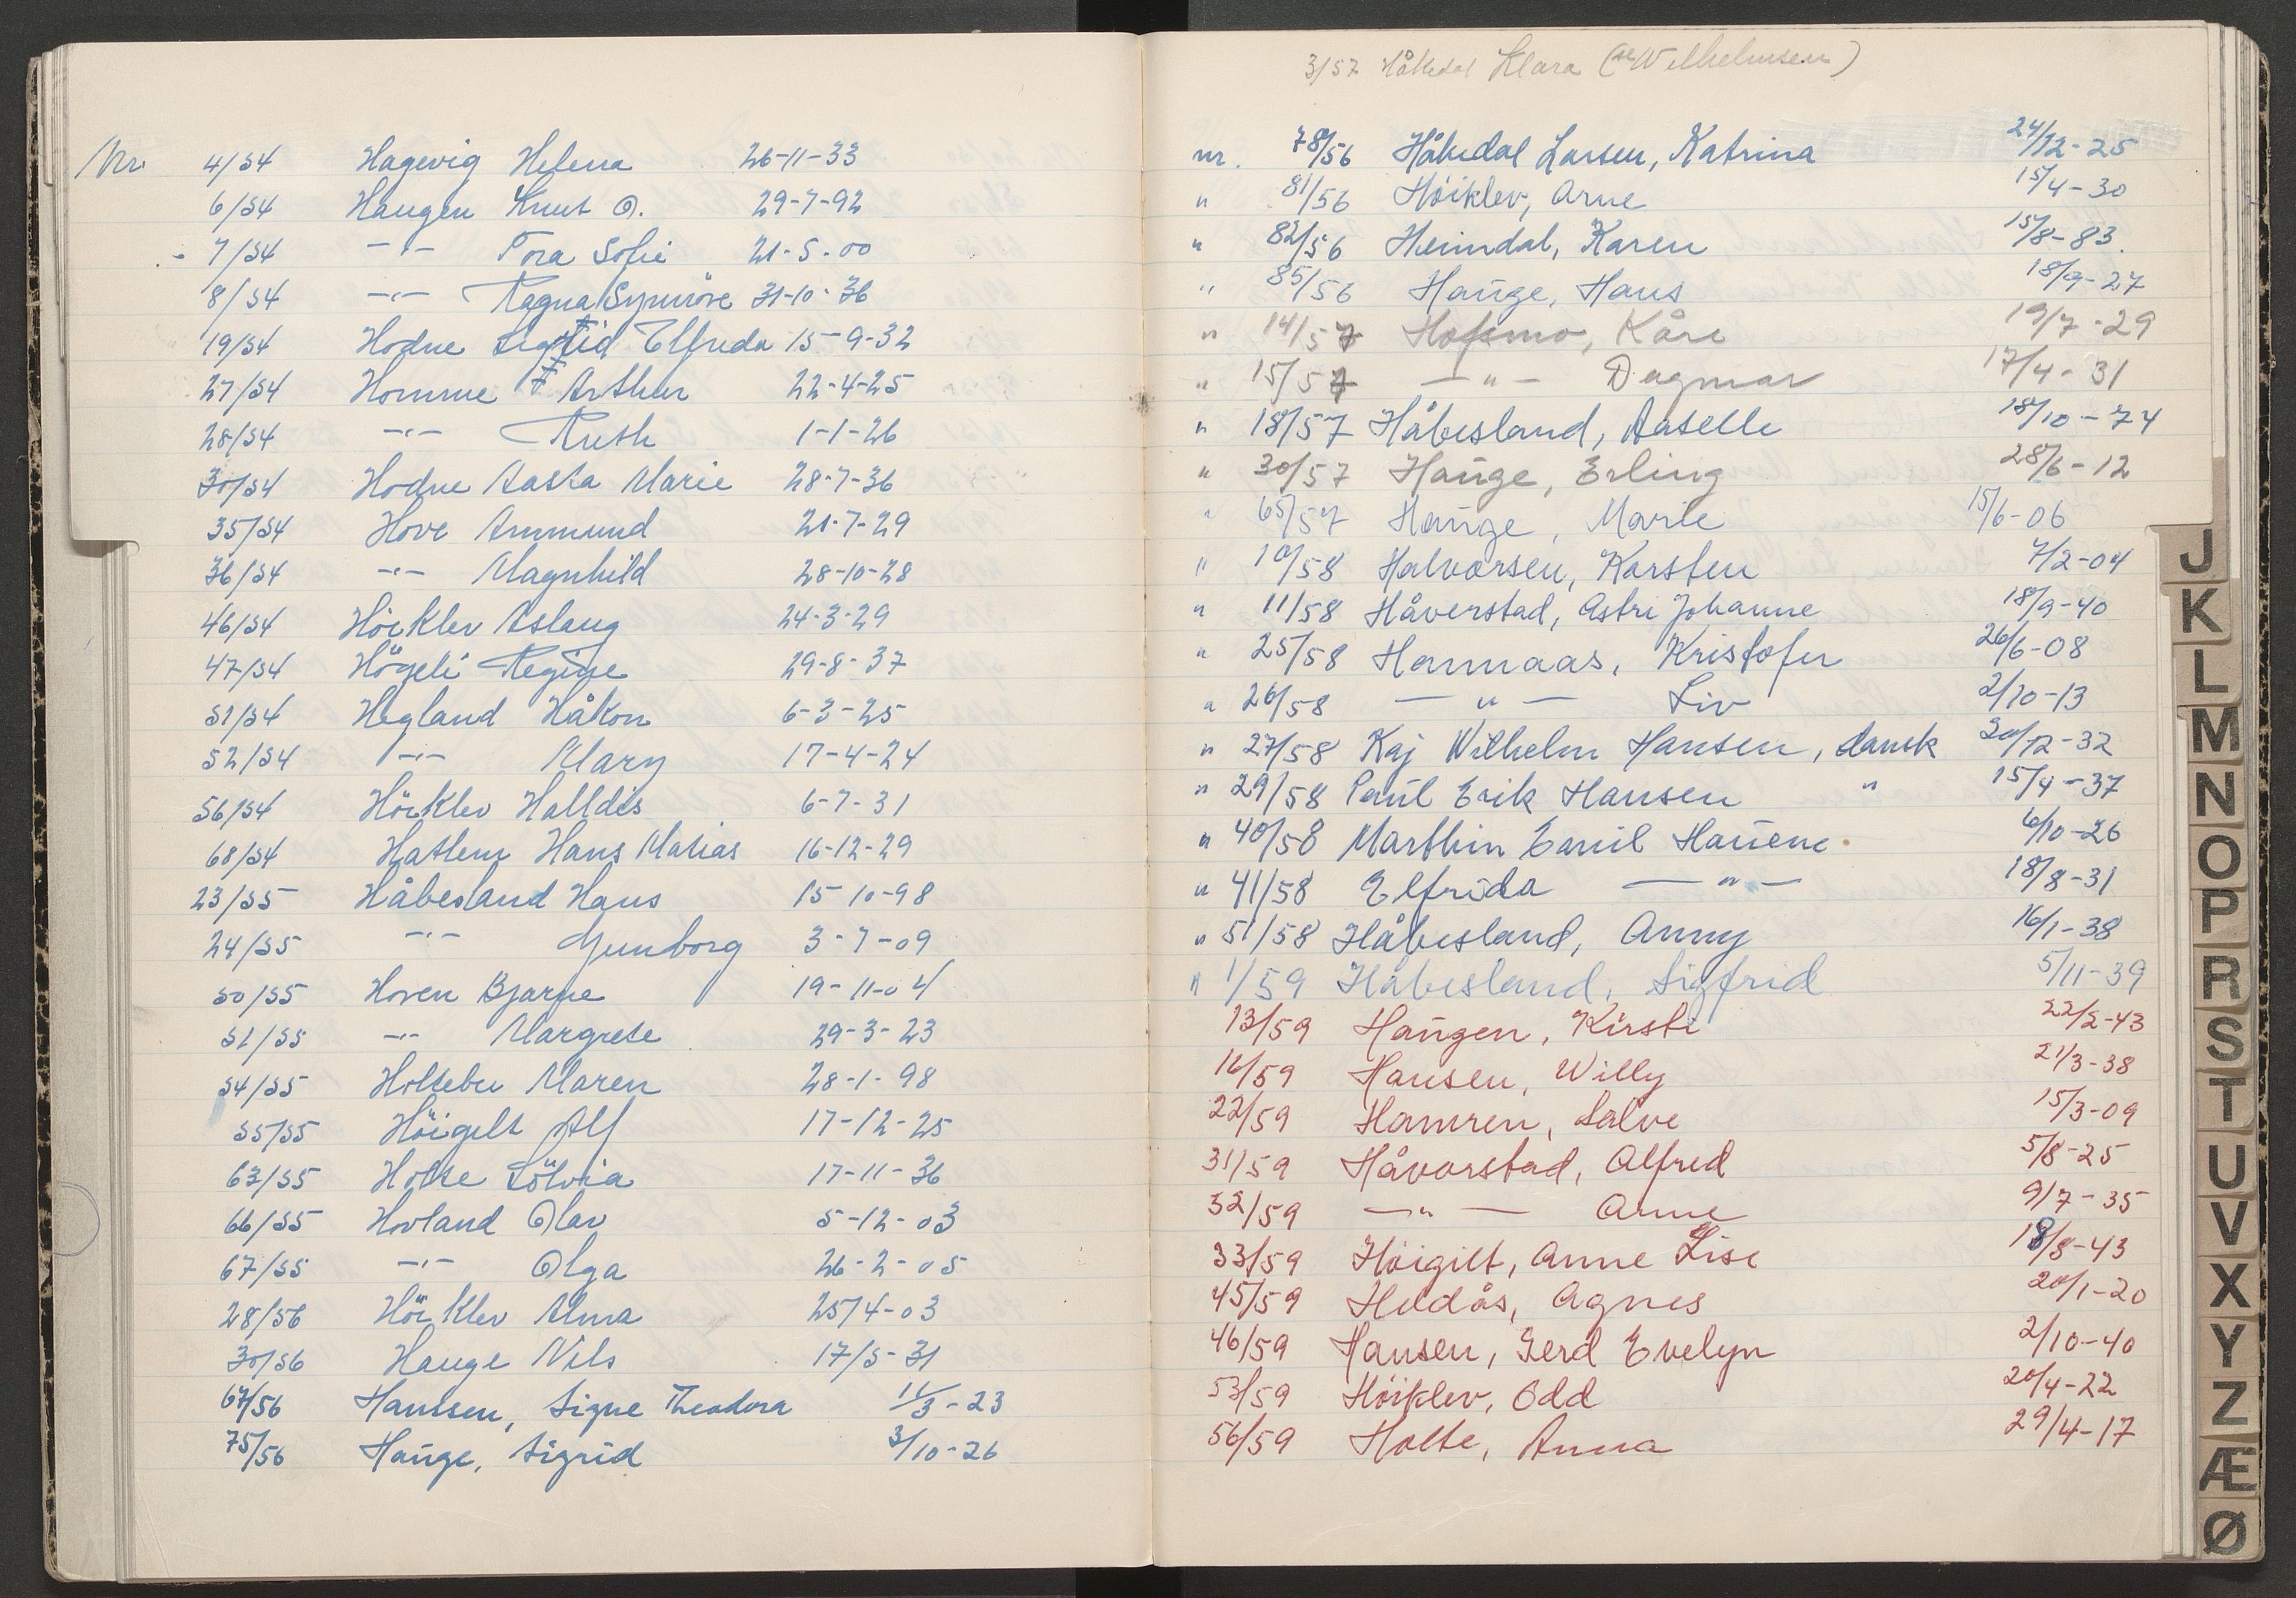 Nr. 4/54 Hagevig Helena 26-11-33
6/54 Haugen Knut O. 29-7-92
7/54 -"- Tora Sofie 21-5-00
8/54 -"- Ragna Synnöve 31-10-36
19/54 Hodne Sigfrid Elfrida 15-9-32
27/54 Homme Arthur 22-4-25
28/54 -"- Ruth 1-1-26
30/54 Hodne Aasta Marie 28-7-36
35/54 Hove Ammund 21-7-29
36/54 -"- Magnhild 28-10-28
46/54 Höiklev Aslaug 24-3-29
47/54 Högeli Regine 29-8-37
51/54 Hegland Håkon 6-3-25
52/54 -"- Mary 17-4-24
56/54 Höiklev Halldis 6-7-31
68/54 Hatlem Hans Matias 16-12-29
23/55 Håbesland Hans 15-10-98
24/55 -"- Gunborg 3-7-09
50/55 Hoven Bjarne 19-11-04
51/55 -"- Margrete 29-3-23
54/55 Holtebu Maren 28-1-98
55/55 Höigilt Alf 17-12-25
63/55 Holte Sölvia 17-11-36
66/55 Hovland Olav 5-12-03
67/55 -"- Olga 26-2-05
28/56 Höiklev Alma 25/4-03
30/56 Hauge Nils 17/5-31
67/56 Hanssen, Signe Theodora 11/3-23
75/56 Hauge, Sigrid 3/10-26
3/57 Håkedal Klara ( Wilhelmsen)
nr. 78/56 Håkedal Larsen, Katrina 24/12-25
" 81/56 Höiklev, Arne 15/4-30
" 82/56 Heimdal, Karen 15/8-83.
" 85/56 Hauge, Hans 18/9-27
" 14/57 Hofsmo, Kåre 19/7-29
" 15/57 -"- Dagmar 17/4-31
" 18/57 Håbesland, Aaselle 18/10-74
" 30/57 Hauge, Erling 28/6-12
" 65/57 Hauge, Marie 15/6-06
" 10/58 Halvorsen, Karsten 7/2-04
" 11/58 Håverstad, Astri Johanne 18/9-40
" 25/58 Hannaas, Kristofer 26/6-08
" 26/58 -"- Liv 2/10-13
" 27/58 Kaj Wilhelm Hansen, dansk 30/12-32
" 29/58 Paul Erik Hansen " 15/4-37
" 40/58 Marthin Emil Hauene 6/10-26
" 41/58 Elfrida -"- 18/8-31
" 51/58 Håbesland, Anny 16/1-38
" 1/59 Håbesland, Sigfrid 5/11-39
13/59 Haugen, Kirsti 22/2-43
16/59 Hansen, Willy 21/3-38
22/59 Hamren, Salve 15/3-09
31/59 Håvorstad, Alfred 5/8-25
32/59 -"- Anne 9/7-35
33/59 Höigilt, Anne Lise 18/8-43
45/59 Heldås, Agnes 20/1-20
46/59 Hansen, Gerd Evelyn 2/10-40
53/59 Höiklev, Odd 20/4-22
56/59 Holte, Anna 29/4-17
J
K
L
M
N
O
P
R
S
T
U
V
X
Y
Z
Æ
Ø